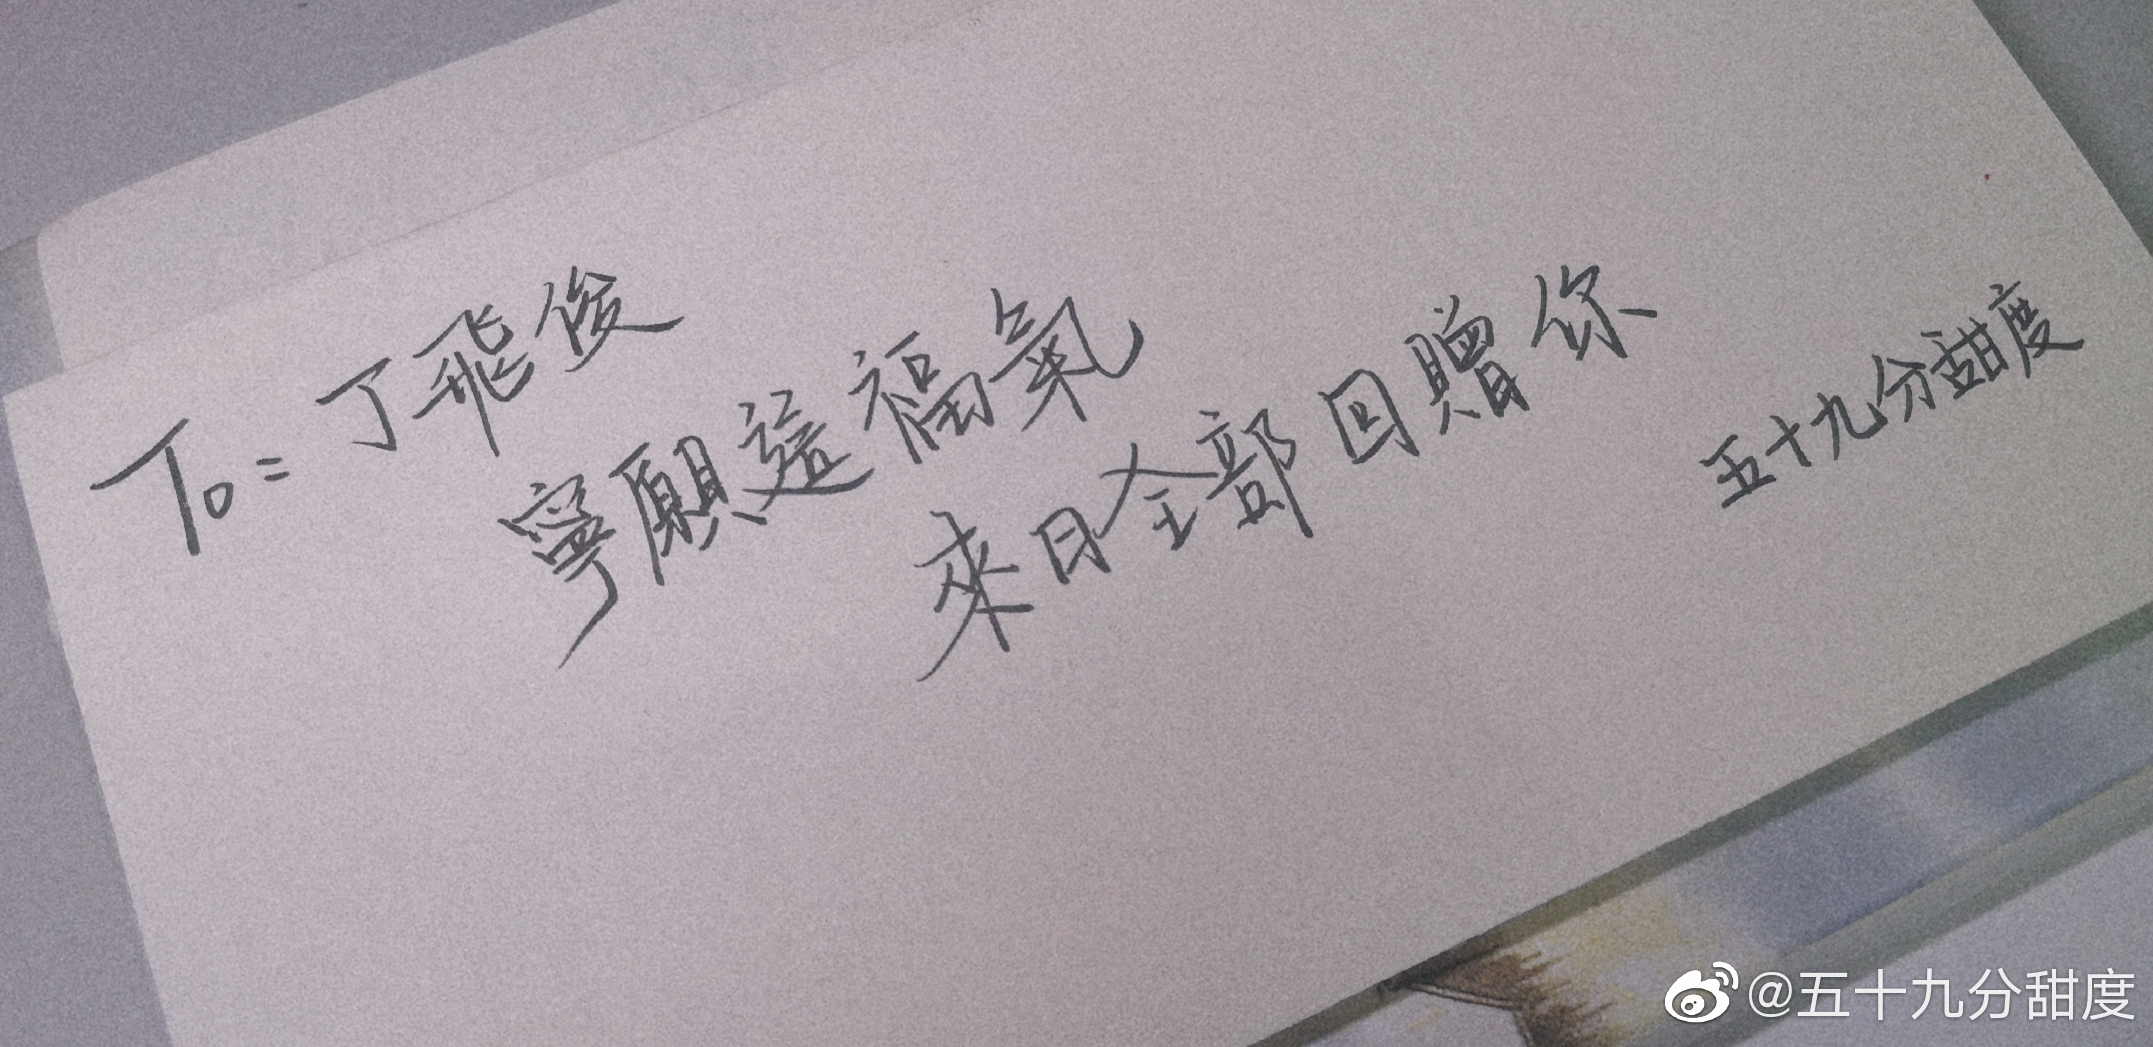 To: 丁飛俊
寧願這福氣
來日全部回贈你
五十九分甜度
@五十九分甜度